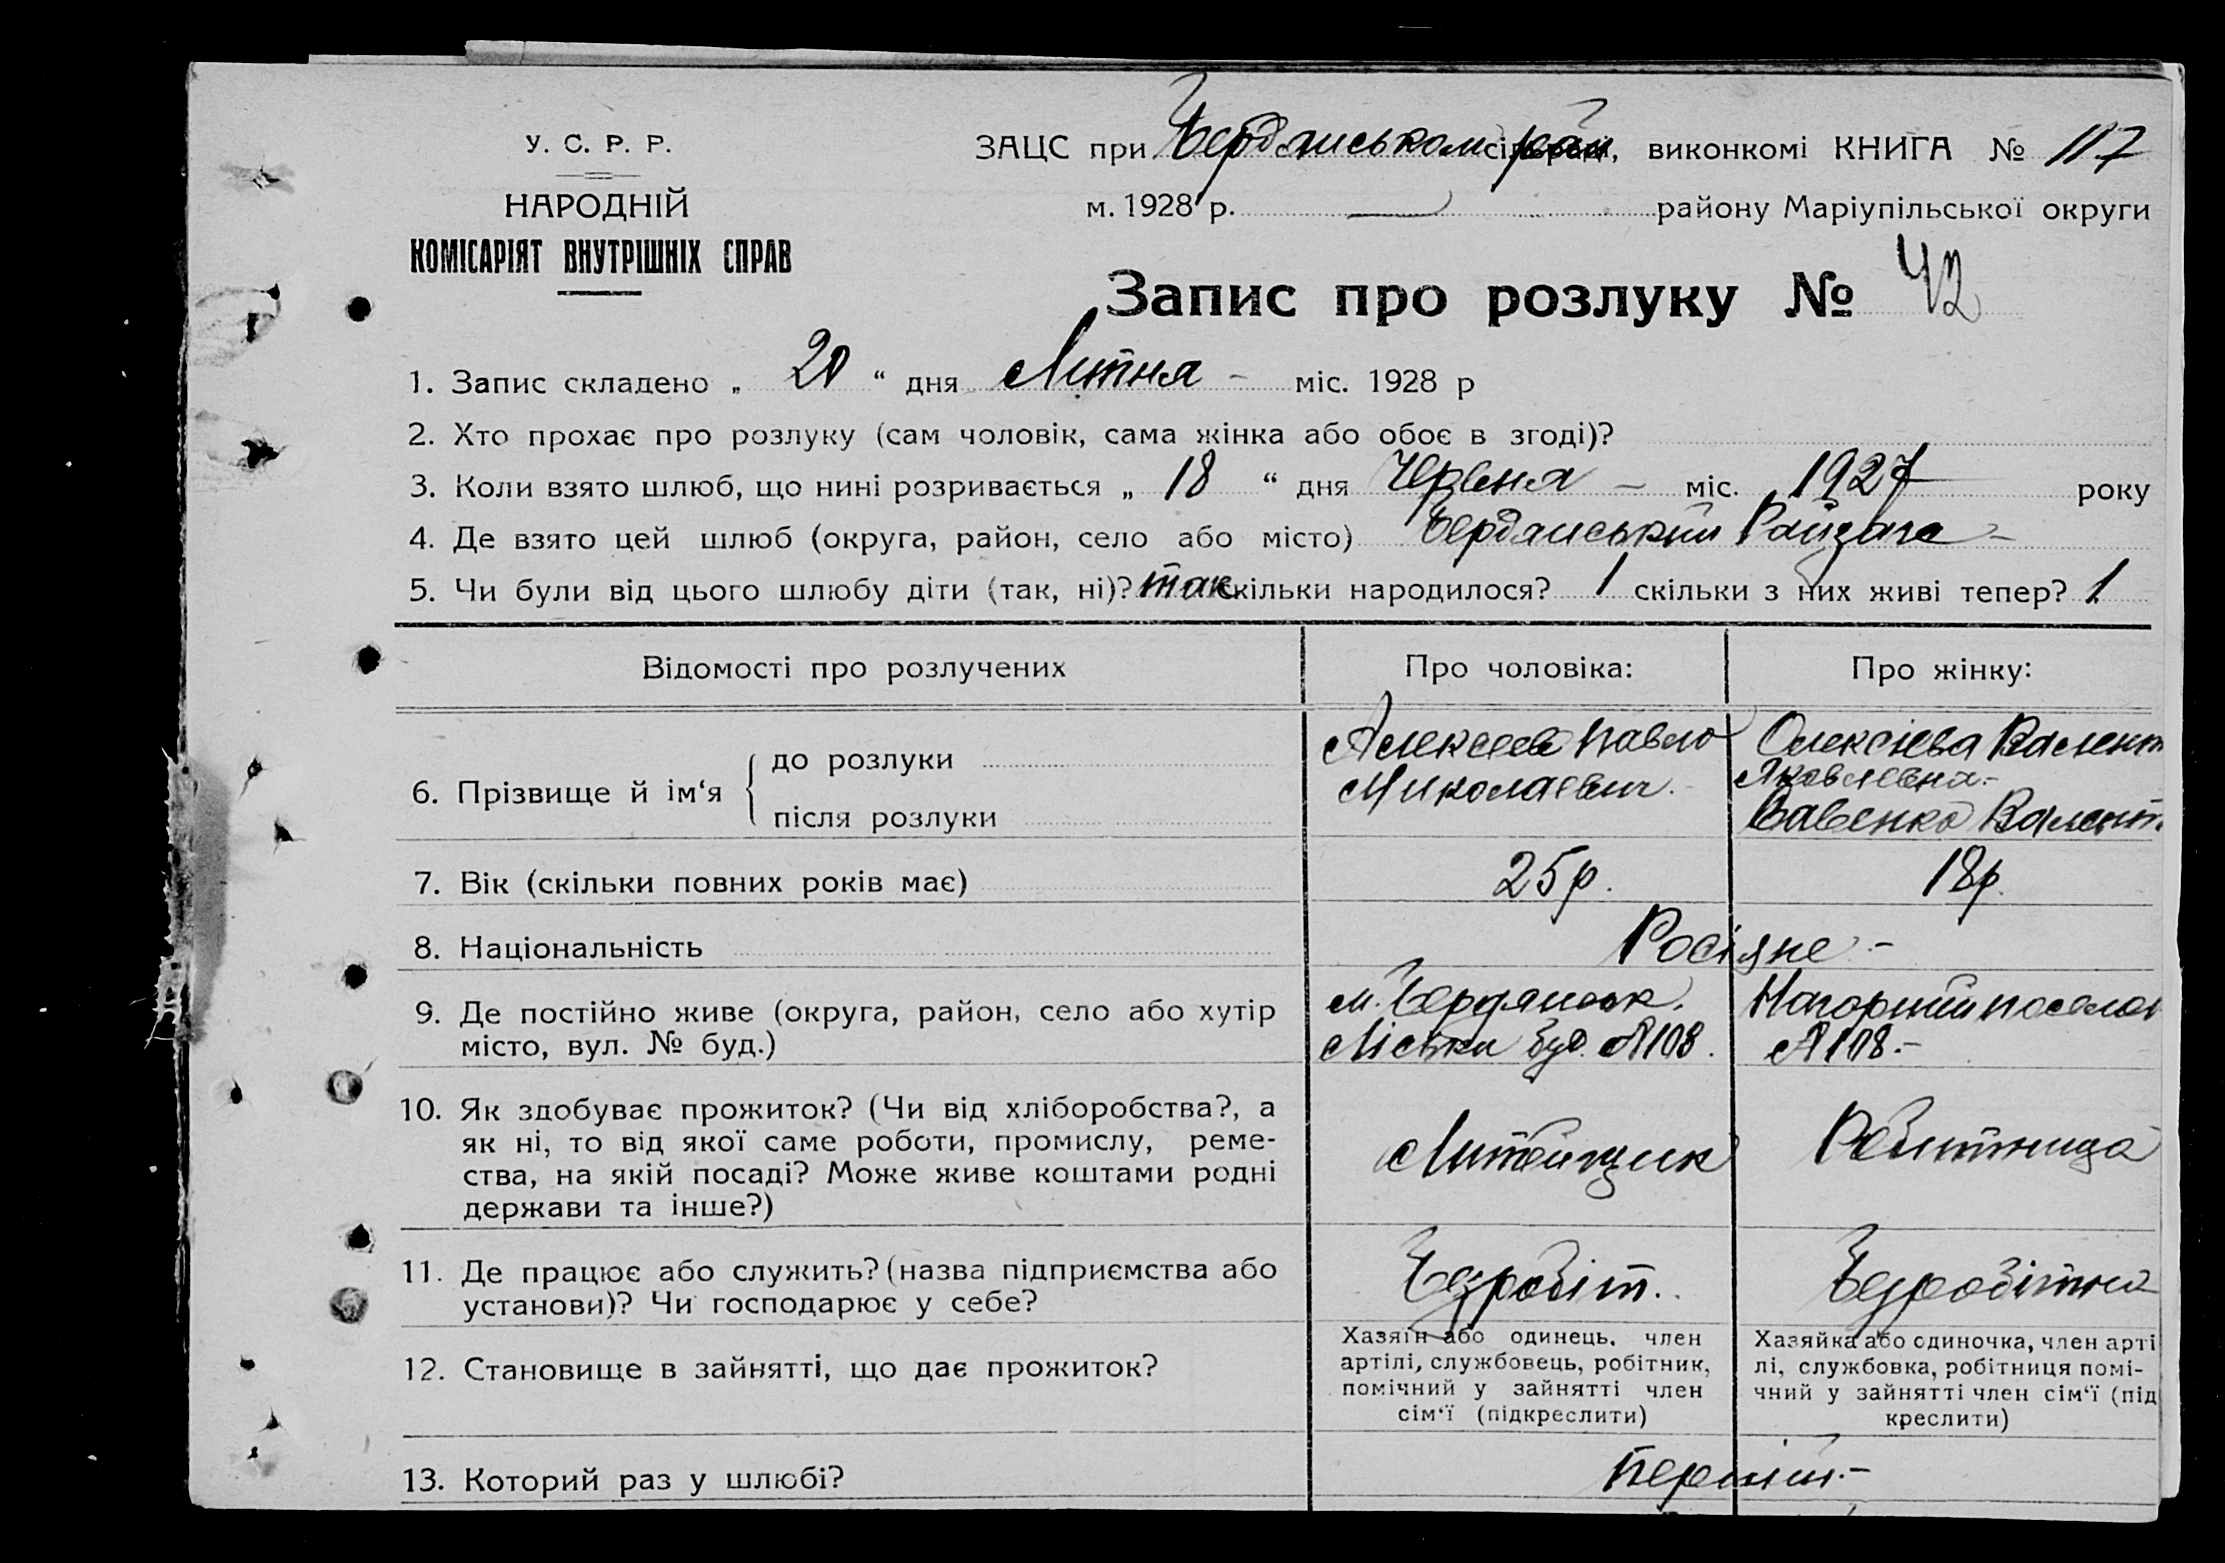 У. С. Р. Р.
НАРОДНІЙ
КОМІСАРІЯТ ВНУТРІШНІХ СПРАВ
ЗАЦС при Бердянському рай виконкомі КНИГА № 117
м. 1928 р. району Маріупільської округи
Запис про розлуку № 42
1. Запис складено „ 20 “ дня Литня - міс. 1928 р
2. Хто прохає про розлуку (сам чоловік, сама жінка або обоє в згоді)?
3. Коли взято шлюб, що нині розривається „ 18 “ дня Червня - міс. 1927 року
4. Де взято цей шлюб (округа, район, село або місто) Бердянський Райзагс -
5. Чи були від цього шлюбу діти (так, ні)? так скільки народилося? 1 скільки з них живі тепер? 1
Відомості про розлучених Про чоловіка: Про жінку:
6. Прізвище й ім‘я
до розлуки Алексеев Павло Миколаевич. Олексієва Валент Яковлевна -
після розлуки Вавенко Валент.
7. Вік (скільки повних років має) 25р. 18р.
8. Національність Росіяне -
9. Де постійно живе (округа, район, село або хутір м. Бердянськ. Нагорний поселок
місто, вул. № буд.) буд. №108. №108.-
10. Як здобуває прожиток? (Чи від хліборобства?, а
як ні, то від якої саме роботи, промислу, реме-
ства, на якій посаді? Може живе коштами родні Литейщик Робитниця
держави та інше?)
11. Де працює або служить? (назва підприємства або Безробіт. Безробітна
установи)? Чи господарює у себе?
12. Становище в зайнятті, що дає прожиток?
Хазяїн або одинець, член
артілі, службовець, робітник,
помічний у зайнятті член
сім‘ї (підкреслити)
Хазяйка або одиночка, член арті
лі, службовка, робітниця помі-
чний у зайнятті член сім‘ї (під
креслити)
13. Которий раз у шлюбі? Перший.-